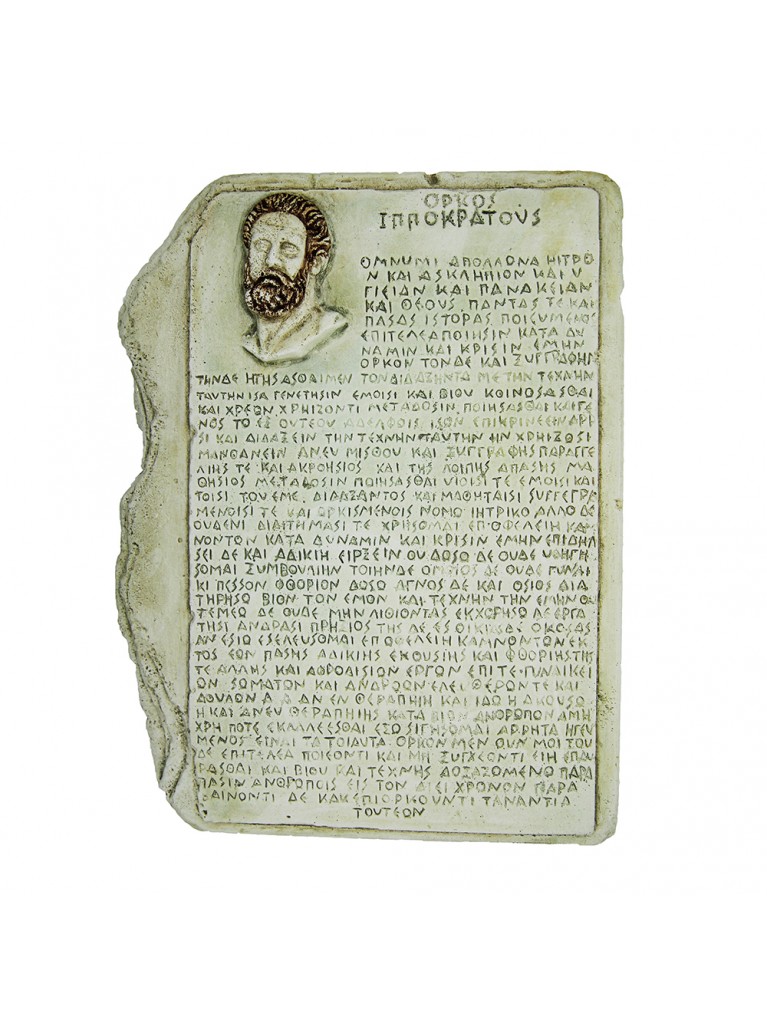 ΟΡΚΟΣ
ΙΠΠΟΚΡΑΤΟΥΣ
ΟΜΝΥΜΙ ΑΠΟΛΛΩΝΑ ΗΙΤΡΟ
Ν ΚΑΙ ΑΣΚΛΗΠΙΟΝ ΚΑΙ Υ
ΓΙΕΙΑΝ ΚΑΙ ΠΑΝΑΚΕΙΑΝ
ΚΑΙ ΘΕΟΥΣ ΠΑΝΤΑΣ ΤΕ ΚΑΙ
ΠΑΣΑΣ ΙΣΤΟΡΑΣ ΠΟΙΕΥΜΕΝΟΣ
ΕΠΙΤΕΛΕΑ ΠΟΙΗΣΙΝ ΚΑΤΑ ΔΥ
ΝΑΜΙΝ ΚΑΙ ΚΡΙΣΙΝ ΕΜΗΝ
ΟΡΚΟΝ ΤΟΝΔΕ ΚΑΙ ΞΥΓΓΡΑΦΗΝ
ΤΗΝΔΕ ΗΓΗΣΑΣΘΑΙ ΜΕΝ ΤΟΝ ΔΙΔΑΞΑΝΤΑ ΜΕ ΤΗΝ ΤΕΧΝΗΝ
ΤΑΥΤΗΝ ΙΣΑ ΓΕΝΕΤΗΣΙΝ ΕΜΟΙΣΙ ΚΑΙ ΒΙΟΥ ΚΟΙΝΩΣΑΣΘΑΙ
ΚΑΙ ΧΡΕΩΝ ΧΡΗΙΖΟΝΤΙ ΜΕΤΑΔΟΣΙΝ ΠΟΙΗΣΑΣΘΑΙ ΚΑΙ ΓΕ
ΝΟΣ ΤΟ ΕΞ ΟΥΤΕΟΥ ΑΔΕΛΦΟΙΣ ΙΣΟΝ ΕΠΙΚΡΙΝΕΕΙΝ ΑΡΡΙ
ΣΙ ΚΑΙ ΔΙΔΑΞΕΙΝ ΤΗΝ ΤΕΧΝΗΝ ΤΑΥΤΗΝ ΗΝ ΧΡΗΙΖΩΣΙ
ΜΑΝΘΑΝΕΙΝ ΑΝΕΥ ΜΙΣΘΟΥ ΚΑΙ ΞΥΓΓΡΑΦΗΣ ΠΑΡΑΓΓΕ
ΛΙΗΣ ΤΕ ΚΑΙ ΑΚΡΟΗΣΙΟΣ ΚΑΙ ΤΗΣ ΛΟΙΠΗΣ ΑΠΑΣΗΣ ΜΑ
ΘΗΣΙΟΣ ΜΕΤΑΔΟΣΙΝ ΠΟΙΗΣΑΣΘΑΙ ΥΙΟΙΣΙ ΤΕ ΕΜΟΙΣΙ ΚΑΙ
ΤΟΙΣΙ ΤΟΥ ΕΜΕ ΔΙΔΑΞΑΝΤΟΣ ΚΑΙ ΜΑΘΗΤΑΙΣΙ ΣΥΓΓΕΓΡΑ
ΜΕΝΟΙΣΙ ΤΕ ΚΑΙ ΩΡΚΙΣΜΕΝΟΙΣ ΝΟΜΩ ΙΗΤΡΙΚΩ ΑΛΛΩ ΔΕ
ΟΥΔΕΝΙ ΔΙΑΙΤΗΜΑΣΙ ΤΕ ΧΡΗΣΟΜΑΙ ΕΠ ΩΦΕΛΕΙΗ ΚΑΜ
ΝΟΝΤΩΝ ΚΑΤΑ ΔΥΝΑΜΙΝ ΚΑΙ ΚΡΙΣΙΝ ΕΜΗΝ ΕΠΙ ΔΗΛ
ΣΕΙ ΔΕ ΚΑΙ ΑΔΙΚΙΗ ΕΙΡΞΕΙΝ ΟΥ ΔΩΣΩ ΔΕ ΟΥΔΕ ΥΦΗΓΗ
ΣΟΜΑΙ ΞΥΜΒΟΥΛΙΗΝ ΤΟΙΗΝΔΕ ΟΜΟΙΩΣ ΔΕ ΟΥΔΕ ΓΥΝΑΙ
ΚΙ ΠΕΣΣΟΝ ΦΘΟΡΙΟΝ ΔΩΣΩ ΑΓΝΩΣ ΔΕ ΚΑΙ ΟΣΙΩΣ ΔΙΑ
ΤΗΡΗΣΩ ΒΙΟΝ ΤΟΝ ΕΜΟΝ ΚΑΙ ΤΕΧΝΗΝ ΤΗΝ ΕΜΗΝ ΟΥ
ΤΕΜΕΩ ΔΕ ΟΥΔΕ ΜΗΝ ΛΙΘΙΩΝΤΑΣ ΕΚΧΩΡΗΣΩ ΔΕ ΕΡΓΑ
ΤΗΣΙ ΑΝΔΡΑΣΙ ΠΡΗΞΙΟΣ ΤΗΣΔΕ ΕΣ ΟΙΚΙΑΣ ΔΕ ΟΚΟΣΑΣ
ΑΝ ΕΣΙΩ ΕΣΕΛΕΥΣΟΜΑΙ ΕΠ ΩΦΕΛΕΙΗ ΚΑΜΝΟΝΤΩΝ ΕΚ
ΤΟΣ ΕΩΝ ΠΑΣΗΣ ΑΔΙΚΙΗΣ ΕΚΟΥΣΙΗΣ ΚΑΙ ΦΘΟΡΙΗΣ ΤΗΣ
ΤΕ ΑΛΛΗΣ ΚΑΙ ΑΦΡΟΔΙΣΙΩΝ ΕΡΓΩΝ ΕΠΙ ΤΕ ΓΥΝΑΙΚΕΙ
ΩΝ ΣΩΜΑΤΩΝ ΚΑΙ ΑΝΔΡΩΩΝ ΕΛΕΥΘΕΡΩΝ ΤΕ ΚΑΙ
ΔΟΥΛΩΝ Α Δ ΑΝ ΕΝ ΘΕΡΑΠΗΙΗ ΚΑΙ ΙΔΩ Η ΑΚΟΥΣΩ
Η ΚΑΙ ΑΝΕΥ ΘΕΡΑΠΗΙΗΣ ΚΑΤΑ ΒΙΟΝ ΑΝΘΡΩΠΩΝ Α ΜΗ
ΧΡΗ ΠΟΤΕ ΕΚΛΑΛΕΕΣΘΑΙ ΕΞΩ ΣΙΓΗΣΟΜΑΙ ΑΡΡΗΤΑ ΗΓΕΥ
ΜΕΝΟΣ ΕΙΝΑΙ ΤΑ ΤΟΙΑΥΤΑ ΟΡΚΟΝ ΜΕΝ ΟΥΝ ΜΟΙ ΤΟΥ
ΔΕ ΕΠΙΤΕΛΕΑ ΠΟΙΕΟΝΤΙ ΚΑΙ ΜΗ ΞΥΓΧΕΟΝΤΙ ΕΙΗ ΕΠΑΥ
ΡΑΣΘΑΙ ΚΑΙ ΒΙΟΥ ΚΑΙ ΤΕΧΝΗΣ ΔΟΞΑΖΟΜΕΝΩ ΠΑΡΑ
ΠΑΣΙΝ ΑΝΘΡΩΠΟΙΣ ΕΙΣ ΤΟΝ ΑΙΕΙ ΧΡΟΝΟΝ ΠΑΡΑ
ΒΑΙΝΟΝΤΙ ΔΕ ΚΑΙ ΕΠΙΟΡΚΟΥΝΤΙ ΤΑΝΑΝΤΙΑ
ΤΟΥΤΕΩΝ